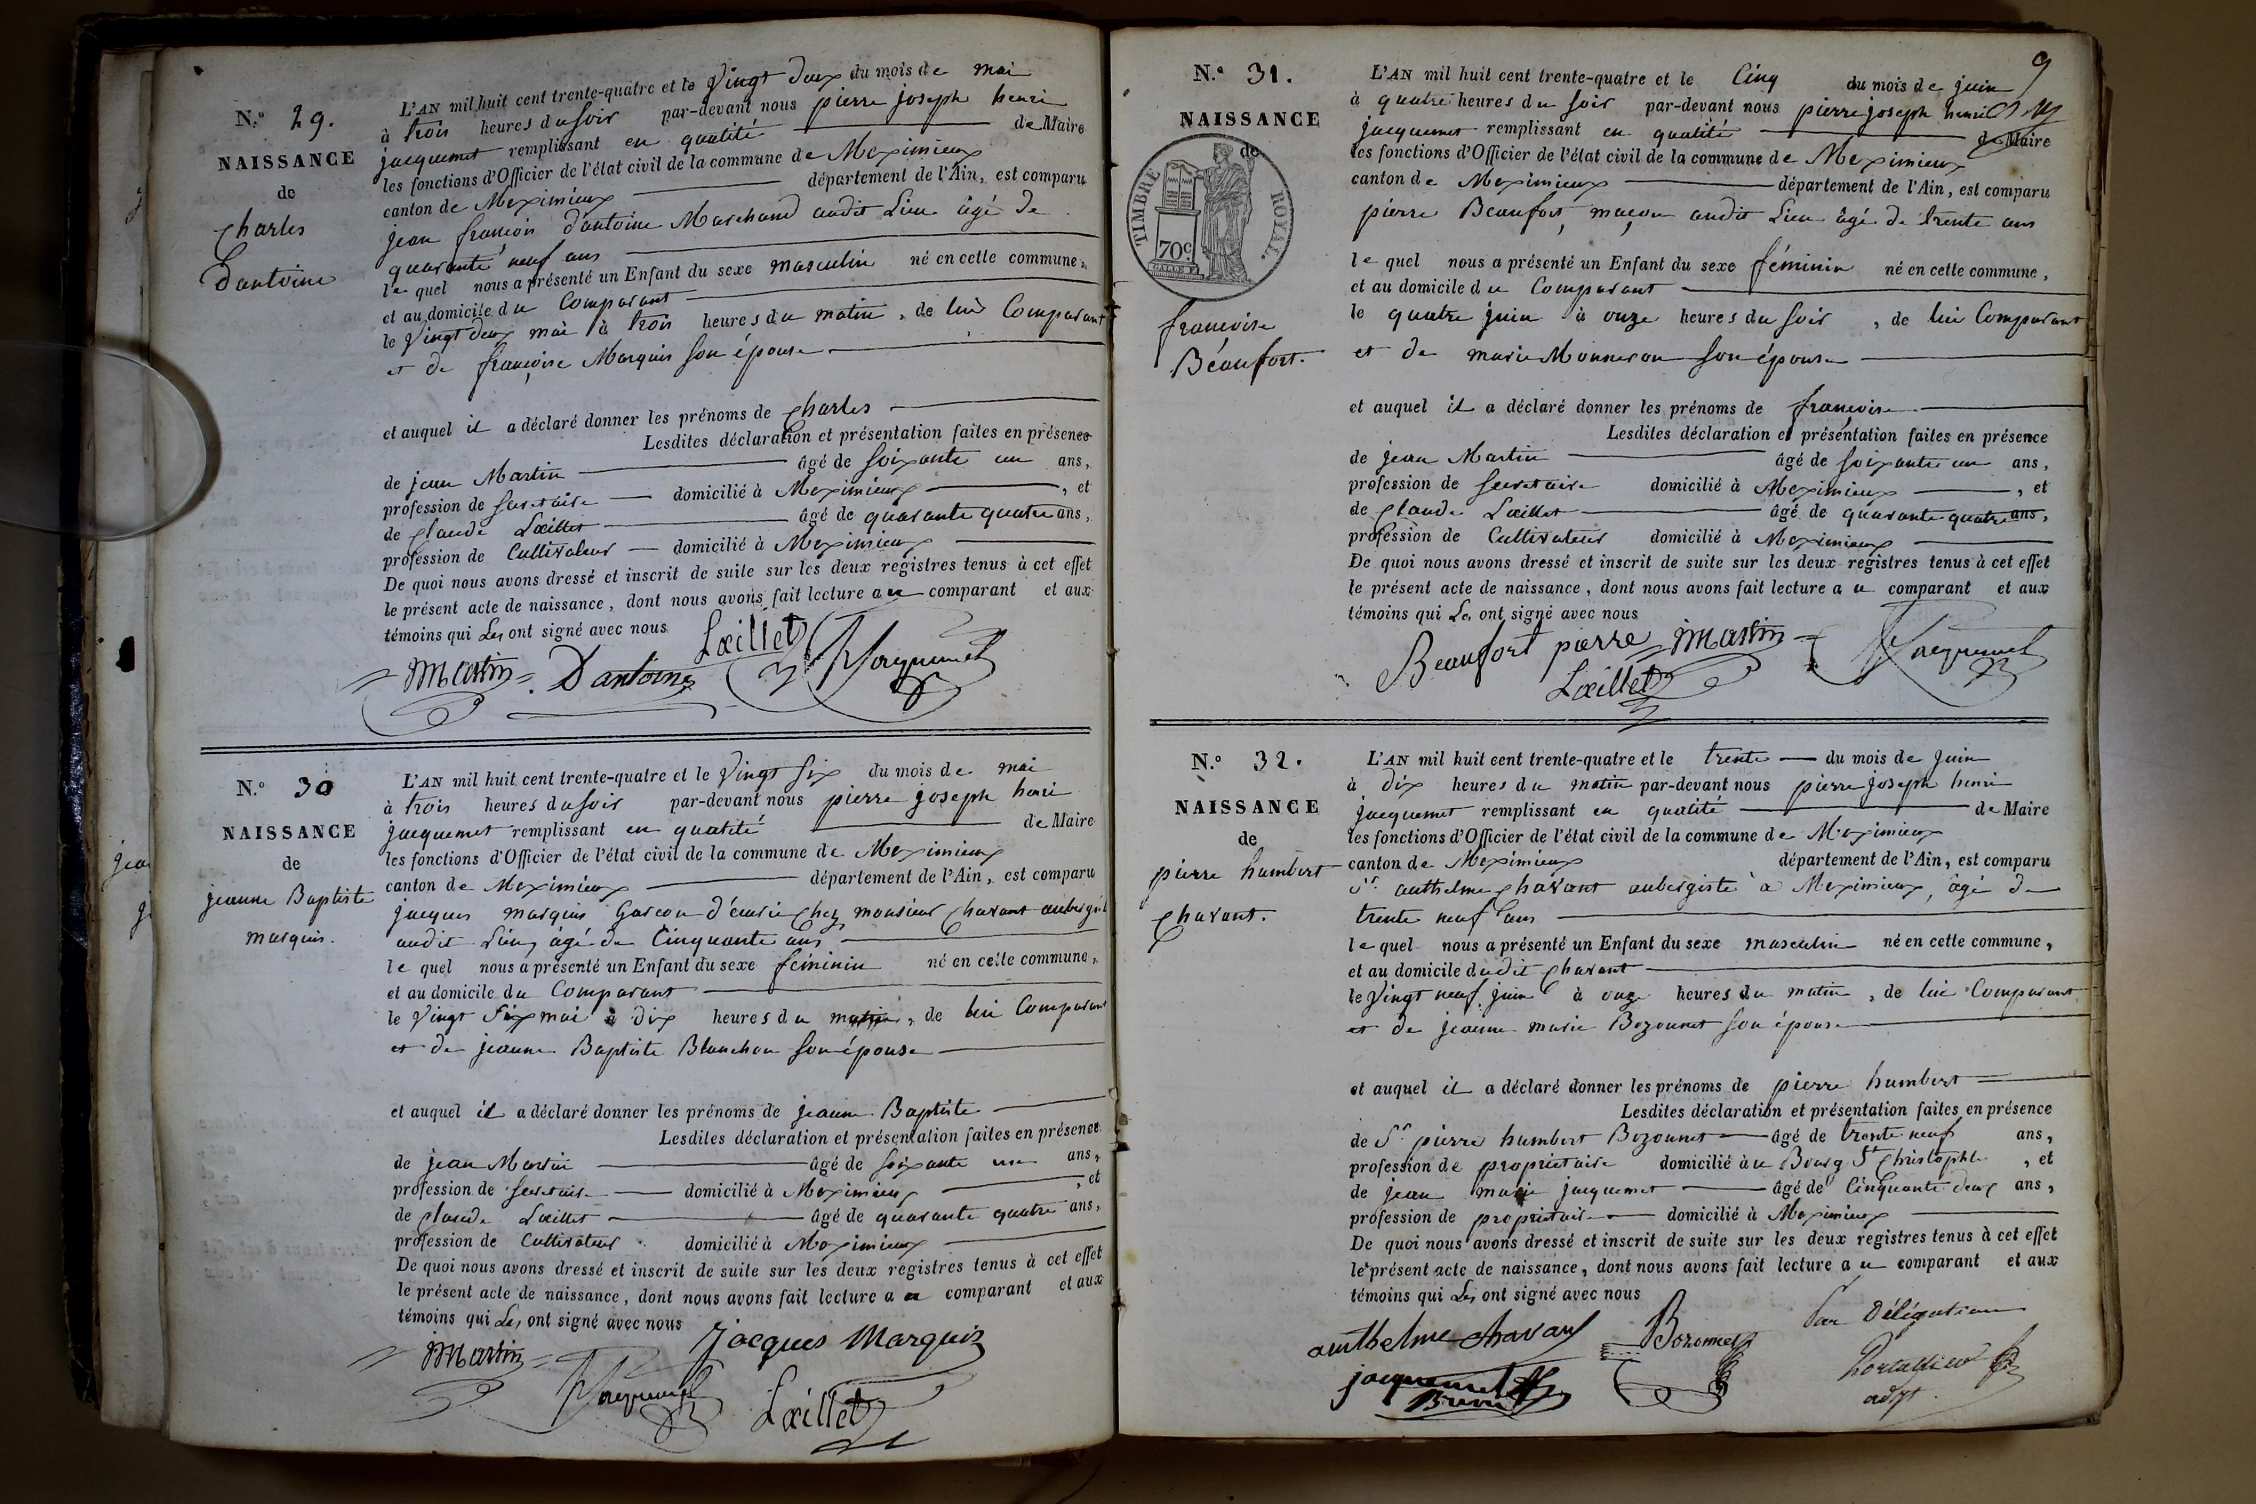 N.° 29.
NAISSANCE
de
Charles
Dantoine
L'AN mil huit cent trente-quatre et le Vingt deux du mois de mai
à trois heures du soir par-devant nous pierre joseph henri
jacquemet remplissant en qualité de Maire
les fonctions d'Officier de l'état civil de la commune de Meximieux
canton de Meximieux département de l'Ain, est comparu
jean françois dantoine Marchand audit Lieu âgé de
quarante neuf ans
le quel nous a présenté un Enfant du sexe masculin né en cette commune,
et au domicile du Comparant
le Vingt deux mai à trois heures du matin, de lui Comparant
et de françoise Marquis son épouse
et auquel il a déclaré donner les prénoms de Charles
Lesdites déclaration et présentation faites en présence
de jean Martin âgé de soixante un ans,
profession de secretaire domicilié à Meximieux, et
de Claude Lœillet âgé de quarante quatre ans,
profession de Cultivateur domicilié à Meximieux
De quoi nous avons dressé et inscrit de suite sur les deux registres tenus à cet effet
le présent acte de naissance, dont nous avons fait lecture au comparant et aux
témoins qui Les ont signé avec nous
Lœillet Jacquemet
Martin Dantoine
N.° 30
NAISSANCE
de
jeanne Baptiste
marquis.
L'AN mil huit cent trente-quatre et le Vingt six du mois de mai
à trois heures du soir par-devant nous pierre joseph henri
jacquemet remplissant en qualité de Maire
les fonctions d'Officier de l'état civil de la commune de Meximieux
canton de Meximieux département de l'Ain, est comparu
jacques marquis Garcon d'écurie Chez monsieur Chavant aubergiste
audit Lieu, âgé de Cinquante ans
le quel nous a présenté un Enfant du sexe féminin né en cette commune,
et au domicile du Comparant
le Vingt six mai à dix heures du matin, de lui Comparant
et de jeanne Baptiste Blanchon son épouse
et auquel il a déclaré donner les prénoms de jeanne Baptiste
Lesdites déclaration et présentation faites en présence
de jean Martin âgé de soixante un ans,
profession de secretaire domicilié à Meximieux, et
de Claude Lœillet âgé de quarante quatre ans,
profession de Cultivateur domicilié à Meximieux
De quoi nous avons dressé et inscrit de suite sur les deux registres tenus à cet effet
le présent acte de naissance, dont nous avons fait lecture au comparant et aux
témoins qui Les ont signé avec nous
Martin Jacques Marquiz
Jacquemet Lœillet
9
N.° 31.
NAISSANCE
de
TIMBRE ROYAL.
70c.
francoise
Béaufort.
L'AN mil huit cent trente-quatre et le Cinq du mois de juin
à quatre heures du soir par-devant nous pierre joseph henri
jacquemet remplissant en qualité de Maire
les fonctions d'Officier de l'état civil de la commune de Meximieux
canton de Meximieux département de l'Ain, est comparu
pierre Beaufort, maçon audit Lieu âgé de trente ans
le quel nous a présenté un Enfant du sexe féminin né en cette commune,
et au domicile du Comparant
le quatre juin à onze heures du soir, de lui Comparant
et de marie Monneron son épouse
et auquel il a déclaré donner les prénoms de françoise
Lesdites déclaration et présentation faites en présence
de jean Martin âgé de soixante un ans,
profession de secretaire domicilié à Meximieux, et
de Claude Lœillet âgé de quarante quatre ans,
profession de Cultivateur domicilié à Meximieux
De quoi nous avons dressé et inscrit de suite sur les deux registres tenus à cet effet
le présent acte de naissance, dont nous avons fait lecture au comparant et aux
témoins qui Les ont signé avec nous
Beaufort pierre Martin Jacquemet
Lœillet
N.° 32.
NAISSANCE
de
pierre humbert
Chavant.
L'AN mil huit cent trente-quatre et le trente du mois de juin
à dix heures du matin par-devant nous pierre joseph henri
jacquemet remplissant en qualité de Maire
les fonctions d'Officier de l'état civil de la commune de Meximieux
canton de Meximieux département de l'Ain, est comparu
Sr. anthelme Chavant aubergiste à Meximieux, âgé de
trente neuf ans
le quel nous a présenté un Enfant du sexe masculin né en cette commune,
et au domicile dudit Chavant
le Vingt neuf juin à onze heures du matin, de lui Comparant
et de jeanne marie Bozonnet son épouse
et auquel il a déclaré donner les prénoms de pierre humbert
Lesdites déclaration et présentation faites en présence
de Sr pierre humbert Bozonnet âgé de trente neuf ans,
profession de propriétaire domicilié au Bourg St Christophe, et
de jean marie jacquemet âgé de Cinquante deux ans,
profession de propriétaire domicilié à Meximieux
De quoi nous avons dressé et inscrit de suite sur les deux registres tenus à cet effet
le présent acte de naissance, dont nous avons fait lecture au comparant et aux
témoins qui Les ont signé avec nous
anthelme chavant Bozonnet Par Délégation
jacquemet
adjt